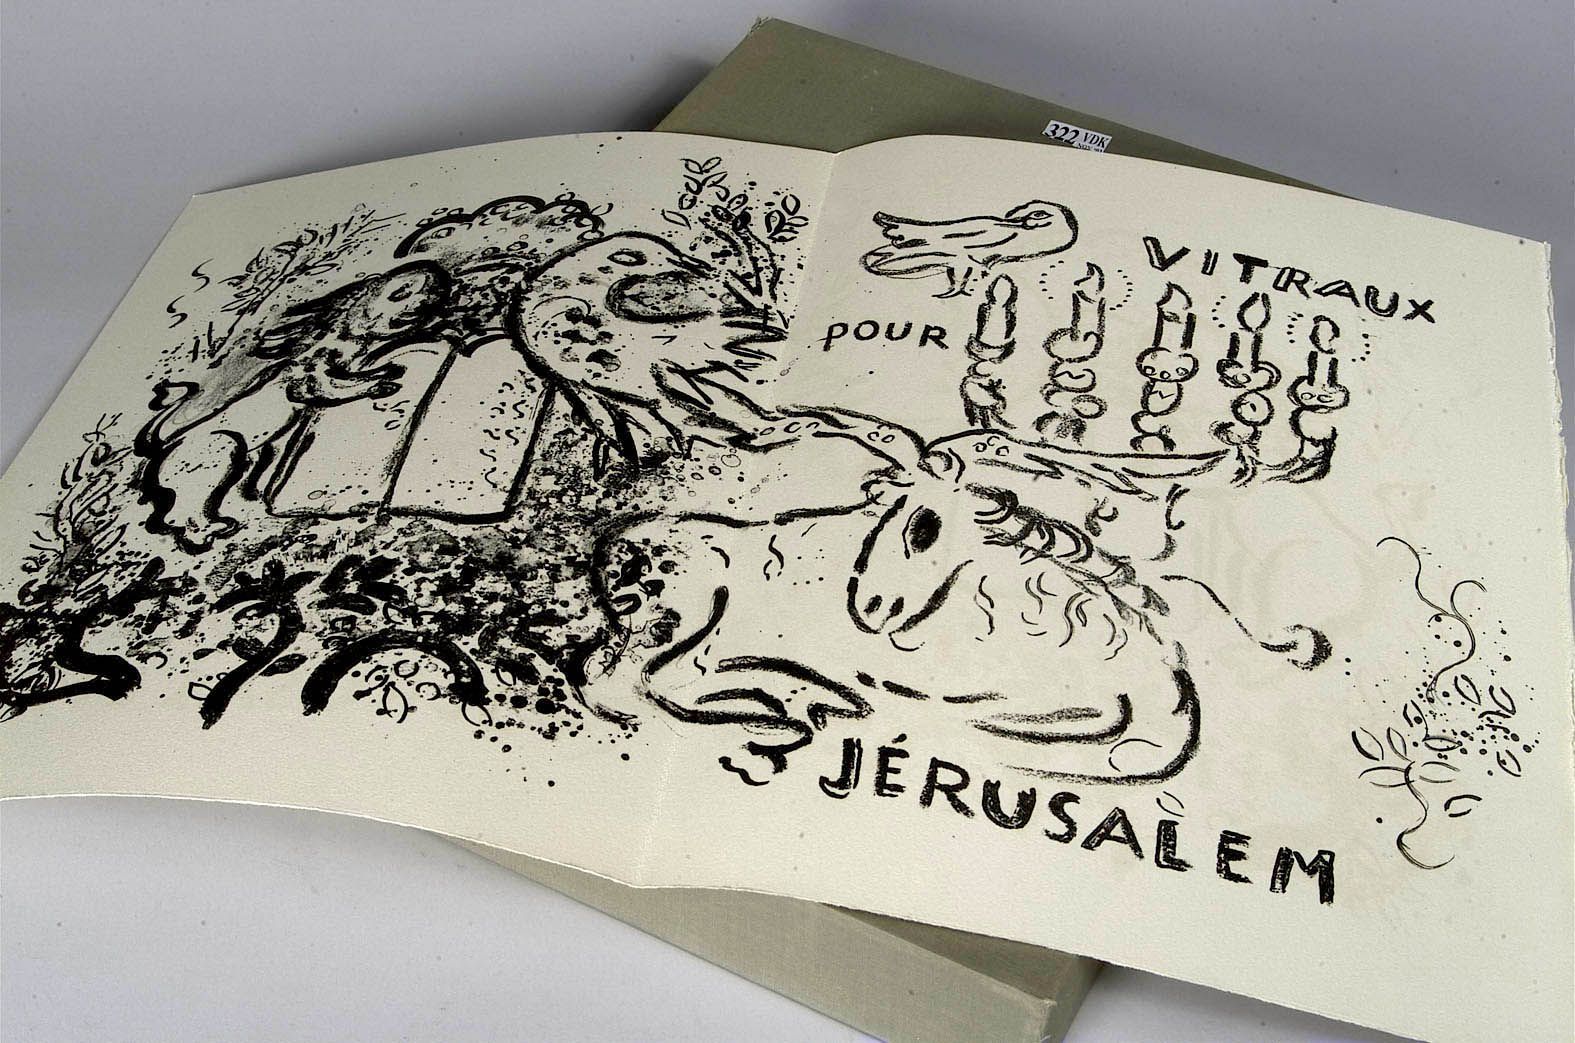 322 VDK
VITRAUX
POUR
JÉRUSALEM